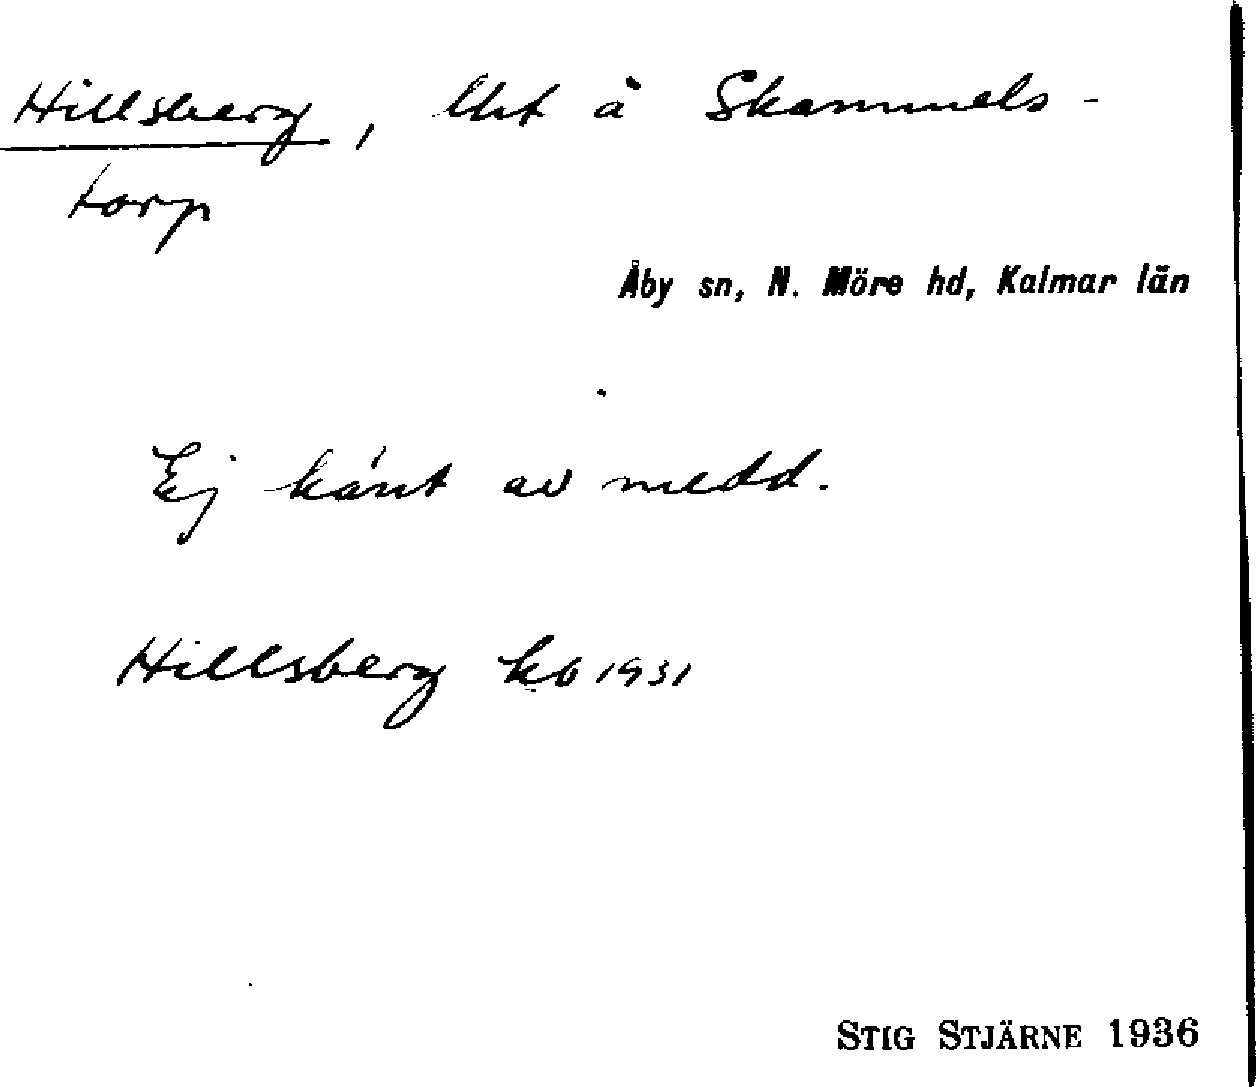 Hillsberg, lht å Skammels-
torp
Åby sn, N. Möre hd, Kalmar län
Ej känt av medd.
Hillsberg kb 1931
STIG STJÄRNE 1936